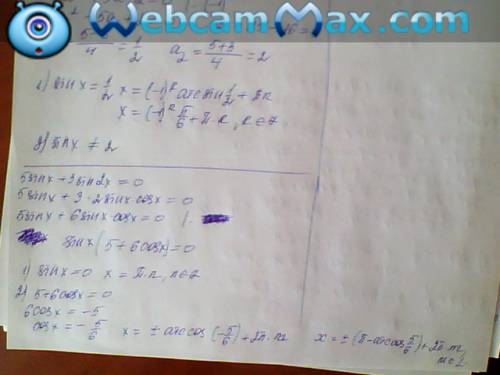 WebcamMax.com
5-3/4 = 1/2   a₂ = 5+3/4 = 2
1) sin x = 1/2   x = (-1)ᵏ arcsin 1/2 + πk
x = (-1)ᵏ π/6 + π·k, k ∈ Z
2) sin x ≠ 2
5 sin x + 3 sin 2x = 0
5 sin x + 3·2 sin x · cos x = 0
5 sin x + 6 sin x · cos x = 0
sin x (5 + 6 cos x) = 0
1) sin x = 0   x = π·n, n ∈ Z
2) 5 + 6 cos x = 0
6 cos x = -5
cos x = -5/6   x = ± arccos (-5/6) + 2π·m   x = ± (π - arccos 5/6) + 2π·m
m ∈ Z